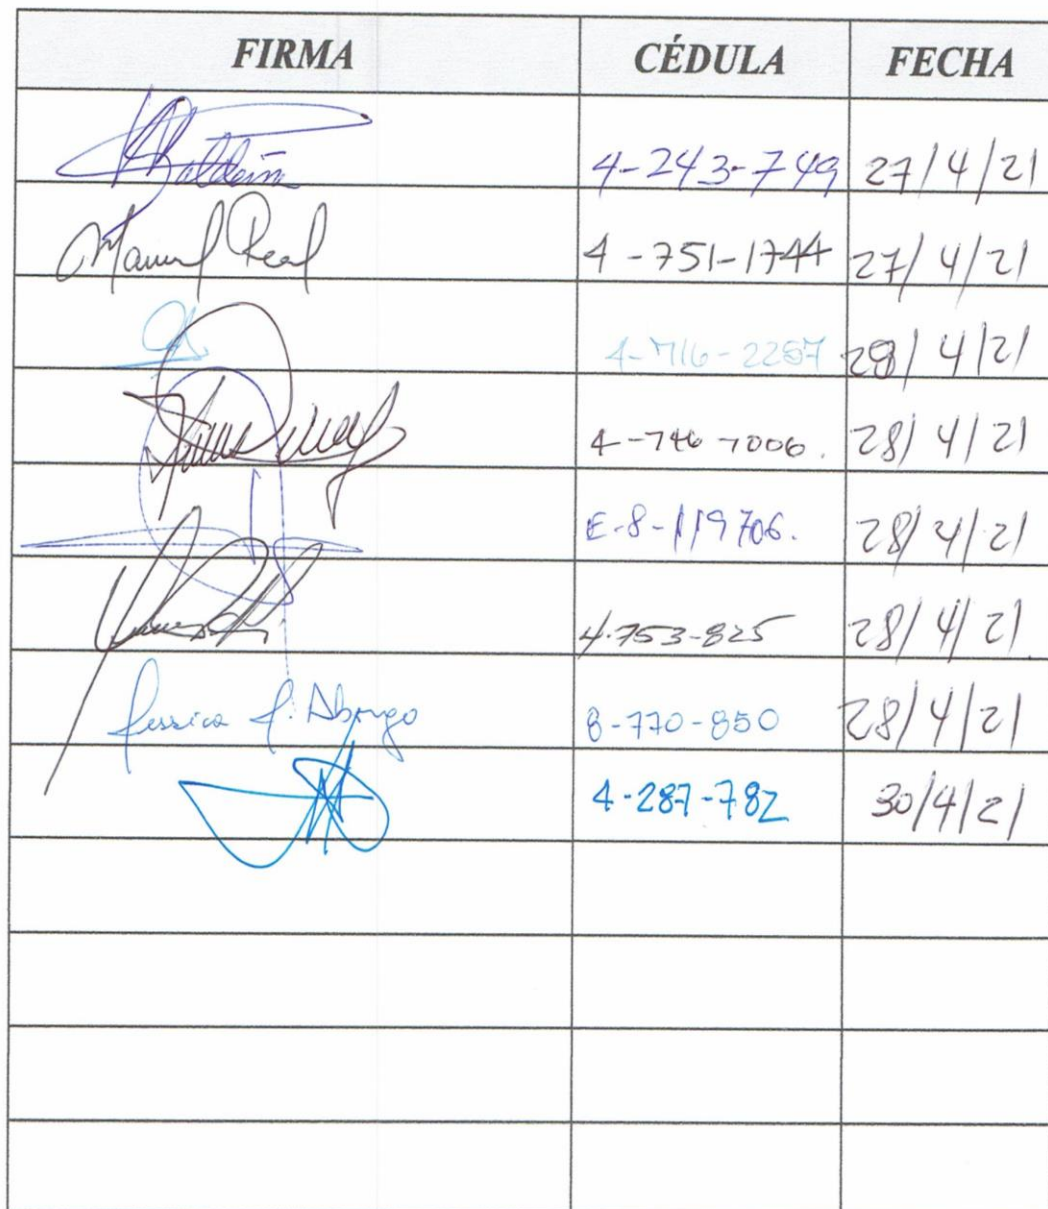 FIRMA CÉDULA FECHA
4-243-749 27/4/21
Manuel Real 4-751-1744 27/4/21
4-716-2257 28/4/21
4-746-1006. 28/4/21
E-8-119706. 28/4/21
4-753-825 28/4/21
Jessica J. Abrego 8-770-850 28/4/21
4-287-782 30/4/21